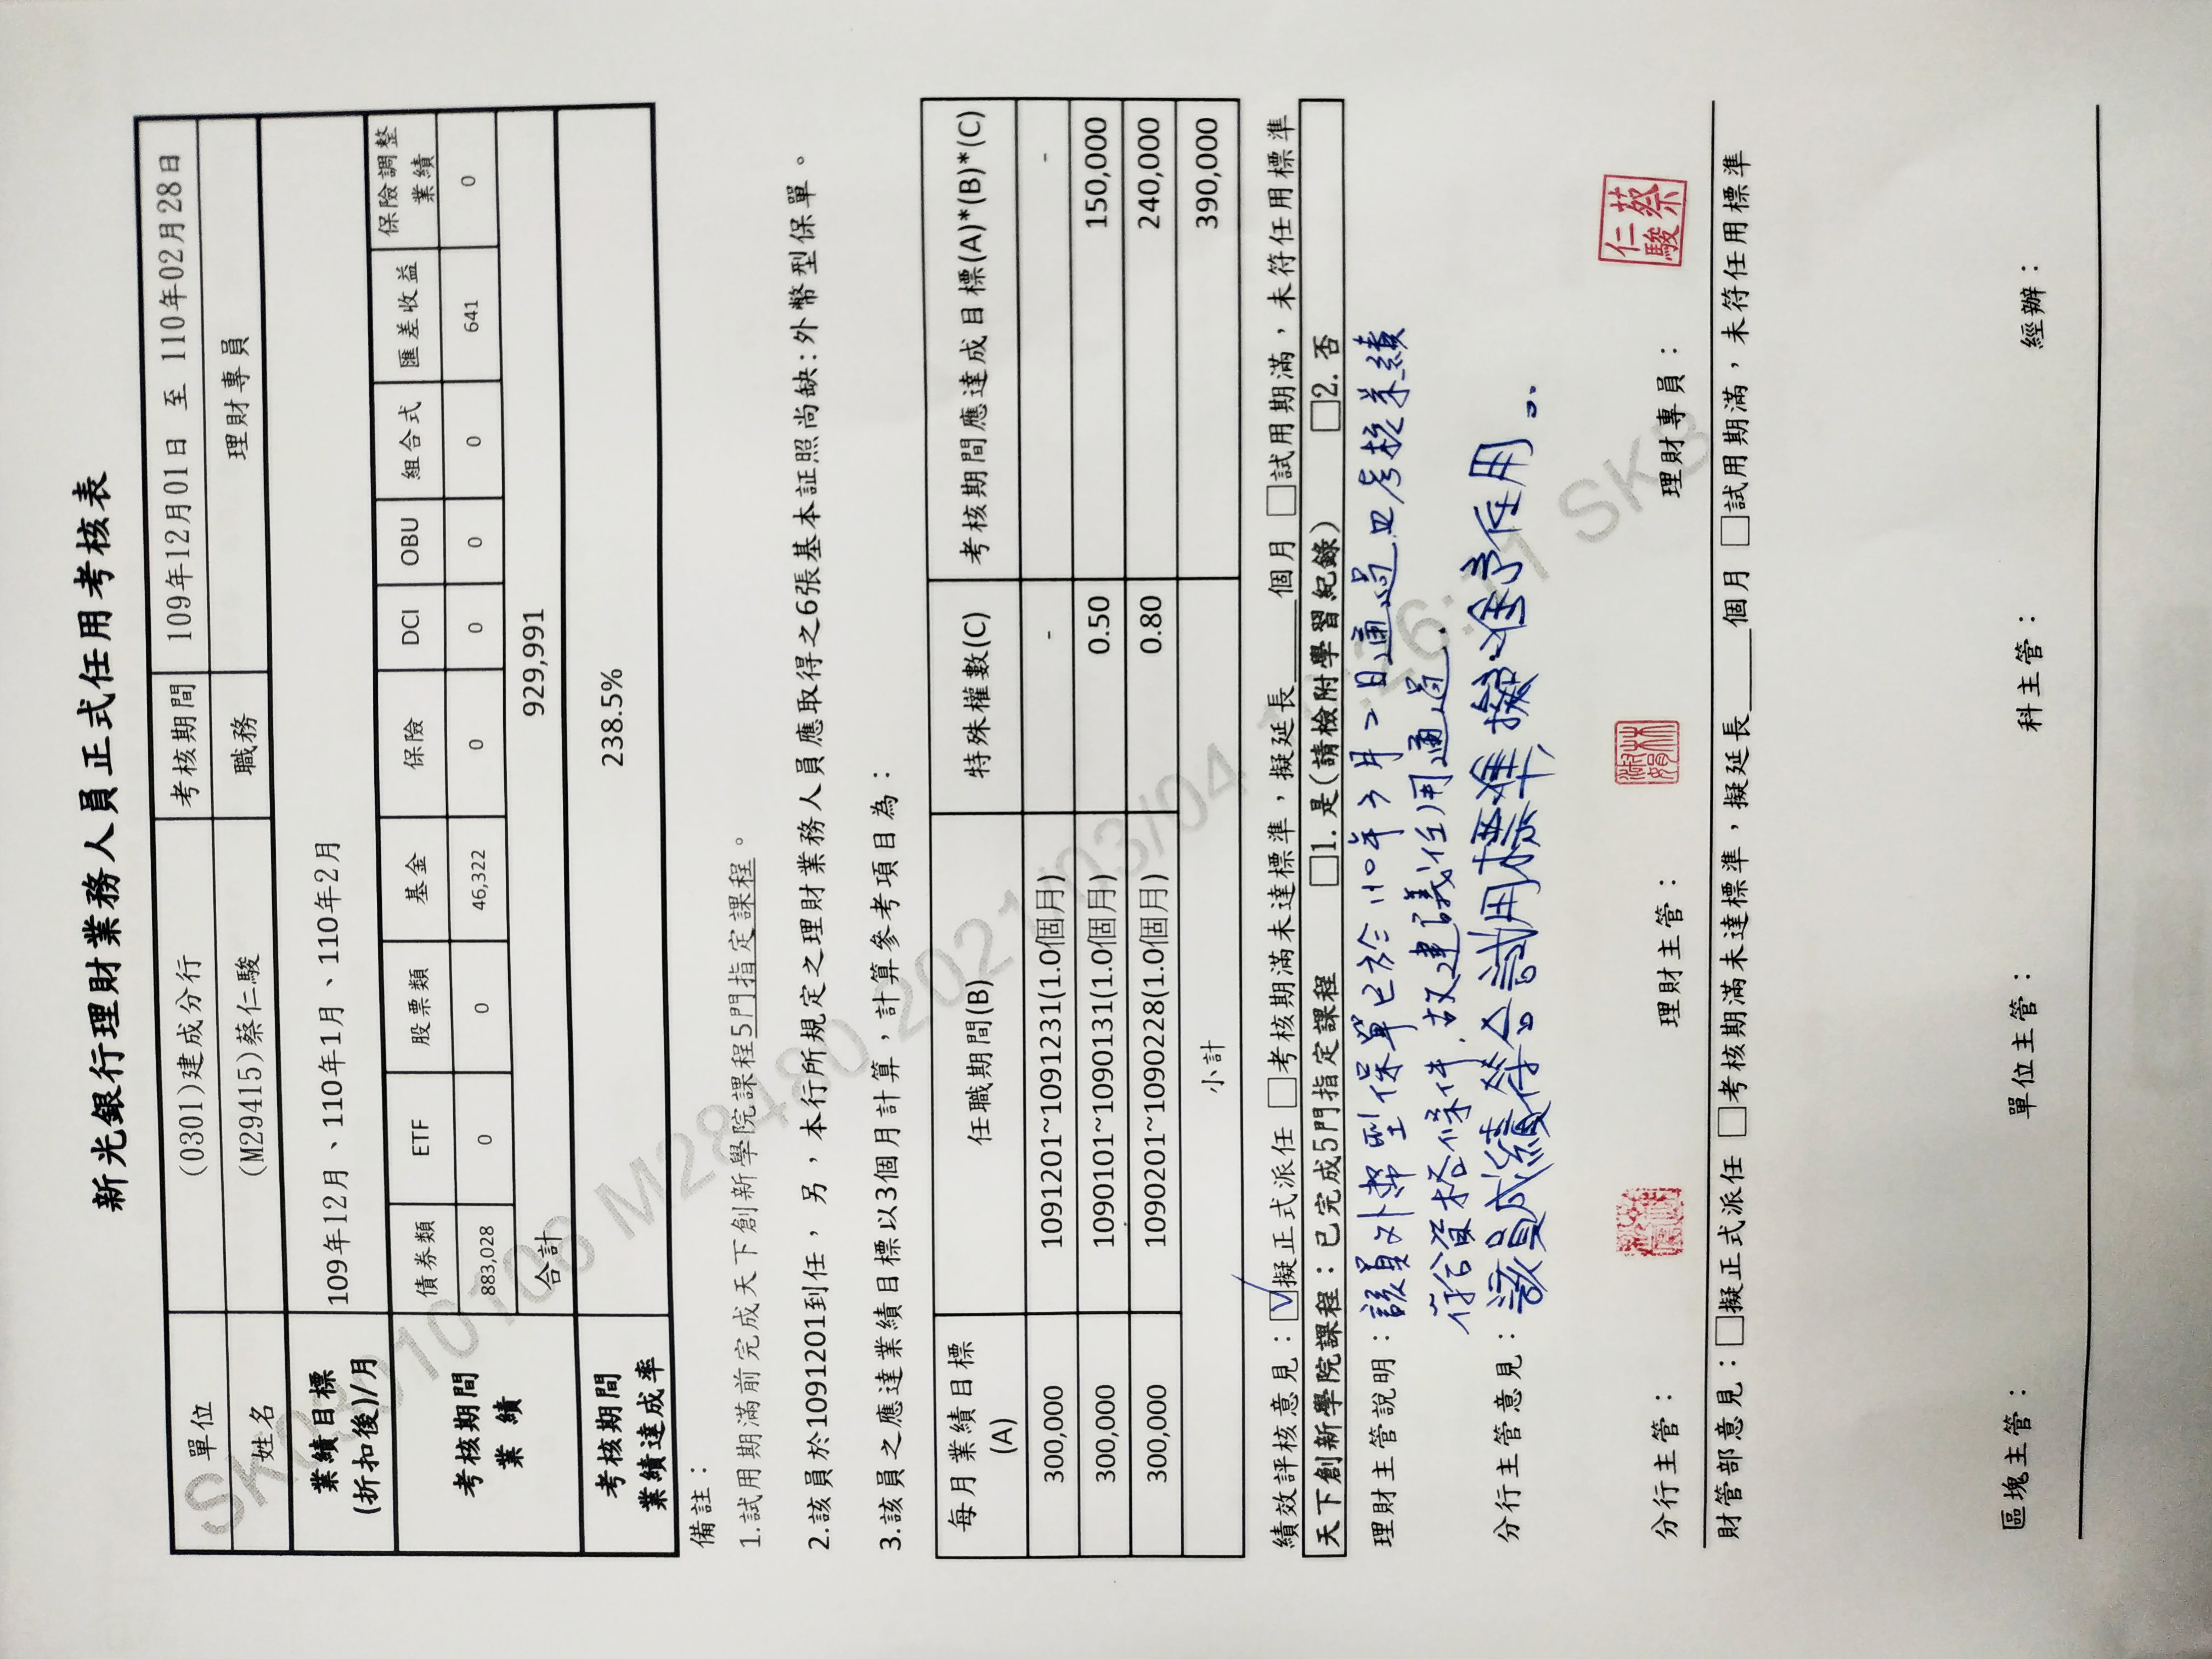 新光銀行理財業務人員正式任用考核表
單位 (0301)建成分行 考核期間 109年12月01日 至 110年02月28日
姓名 (M29415)蔡仁駿 職務 理財專員
業績目標 (折扣後)/月 109年12月、110年1月、110年2月
考核期間 業 績 債券類 ETF 股票類 基金 保險 DCI OBU 組合式 匯差收益 保險調整業績
883,028 0 0 46,322 0 0 0 0 641 0
合計 929,991
考核期間 業績達成率 238.5%
備註：
1.試用期滿前完成天下創新學院課程5門指定課程。
2.該員於1091201到任，另，本行所規定之理財業務人員應取得之6張基本証照尚缺:外幣型保單。
3.該員之應達業績目標以3個月計算，計算參考項目為：
每月業績目標(A) 任職期間(B) 特殊權數(C) 考核期間應達成目標(A)*(B)*(C)
300,000 1091201~1091231(1.0個月) - -
300,000 1090101~1090131(1.0個月) 0.50 150,000
300,000 1090201~1090228(1.0個月) 0.80 240,000
小計 390,000
績效評核意見：☑擬正式派任 □考核期滿未達標準，擬延長___個月 □試用期滿，未符任用標準
天下創新學院課程：已完成5門指定課程 □1.是(請檢附學習紀錄) □2.否
理財主管說明：該員外幣型保單已於110年3月2日通過且考核業績
符合資格條件,故建議任用通過.
分行主管意見：該員成績符合試用標準,擬准予任用。
分行主管： 理財主管： 理財專員： 蔡仁駿
財管部意見：□擬正式派任 □考核期滿未達標準，擬延長___個月 □試用期滿，未符任用標準
區塊主管： 單位主管： 科主管： 經辦：